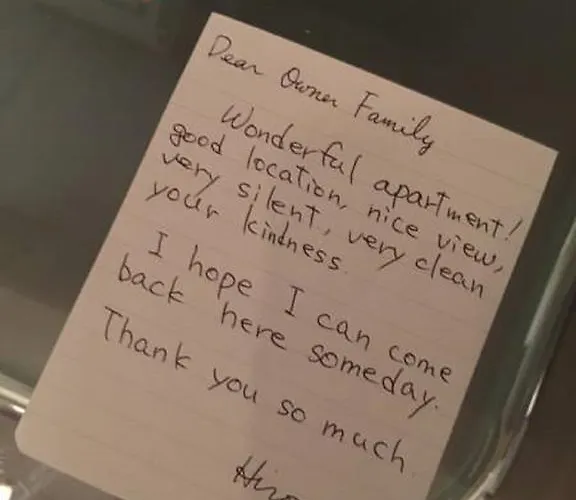 Dear Owner Family
Wonderful apartment!
good location, nice view,
very silent, very clean
your kindness.
I hope I can come
back here someday.
Thank you so much